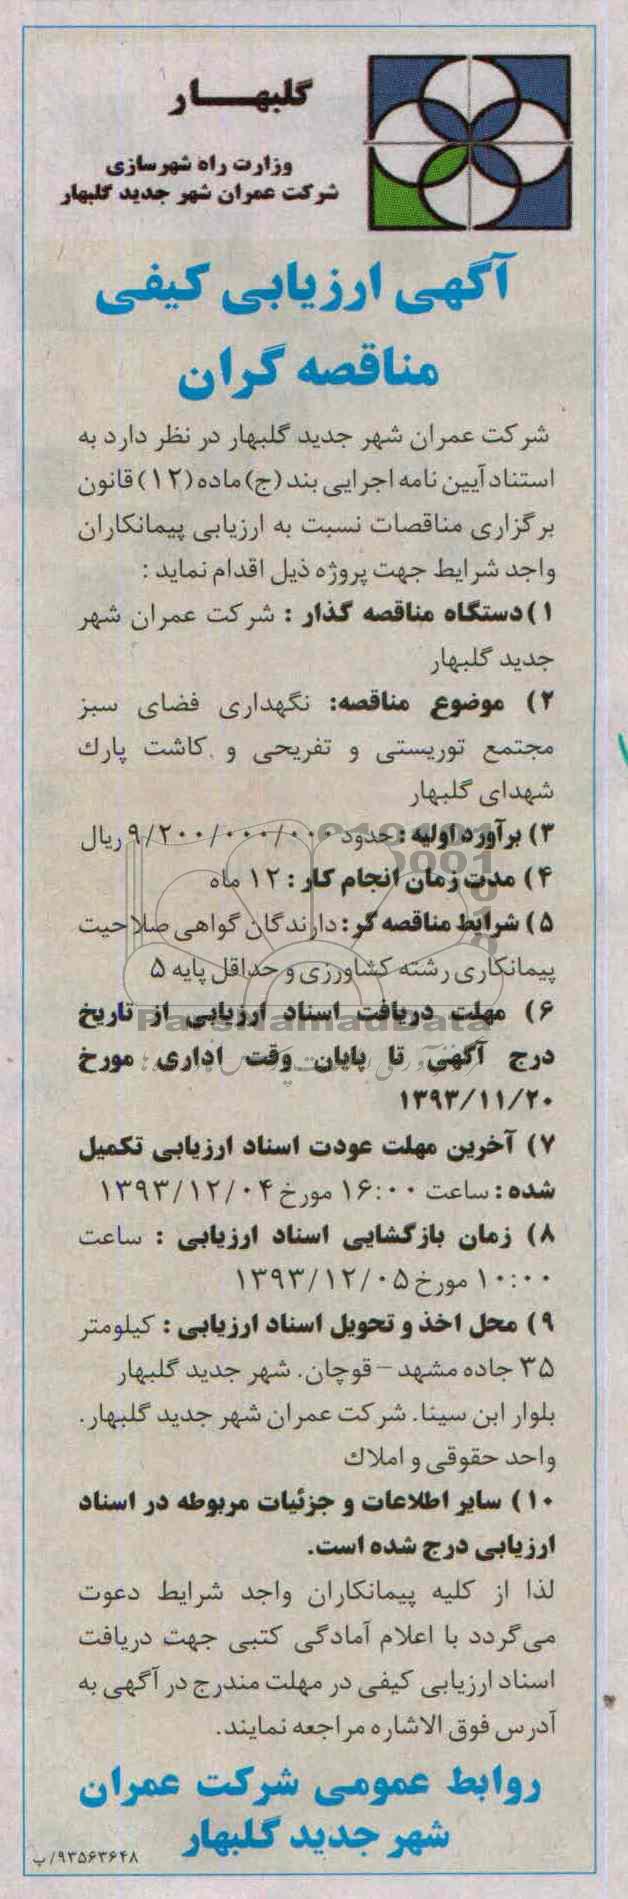 گلبهــــار
وزارت راه شهرسازی
شرکت عمران شهر جدید گلبهار
آگهی ارزیابی کیفی
مناقصه گران
شرکت عمران شهر جدید گلبهار در نظر دارد به
استناد آیین نامه اجرایی بند (ج) ماده (۱۲) قانون
برگزاری مناقصات نسبت به ارزیابی پیمانکاران
واجد شرایط جهت پروژه ذیل اقدام نماید :
۱) دستگاه مناقصه گذار : شرکت عمران شهر
جدید گلبهار
۲) موضوع مناقصه: نگهداری فضای سبز
مجتمع توریستی و تفریحی و کاشت پارك
شهدای گلبهار
۳) برآورد اولیه : حدود ۹/۲۰۰/۰۰۰/۰۰۰ ریال
۴) مدت زمان انجام کار : ۱۲ ماه
۵) شرایط مناقصه گر : دارندگان گواهی صلاحیت
پیمانکاری رشته کشاورزی و حداقل پایه ۵
۶) مهلت دریافت اسناد ارزیابی از تاریخ
ParsNamadData
درج آگهی تا پایان وقت اداری مورخ
۱۳۹۳/۱۱/۲۰
۷) آخرین مهلت عودت اسناد ارزیابی تکمیل
شده : ساعت ۱۶:۰۰ مورخ ۱۳۹۳/۱۲/۰۴
۸) زمان بازگشایی اسناد ارزیابی : ساعت
۱۰:۰۰ مورخ ۱۳۹۳/۱۲/۰۵
۹) محل اخذ و تحویل اسناد ارزیابی : کیلومتر
۳۵ جاده مشهد - قوچان. شهر جدید گلبهار
بلوار ابن سینا. شرکت عمران شهر جدید گلبهار.
واحد حقوقی و املاك
۱۰) سایر اطلاعات و جزئیات مربوطه در اسناد
ارزیابی درج شده است.
لذا از کلیه پیمانکاران واجد شرایط دعوت
می گردد با اعلام آمادگی کتبی جهت دریافت
اسناد ارزیابی کیفی در مهلت مندرج در آگهی به
آدرس فوق الاشاره مراجعه نمایند.
روابط عمومی شرکت عمران
شهر جدید گلبهار
۹۳۵۶۳۶۴۸/ب